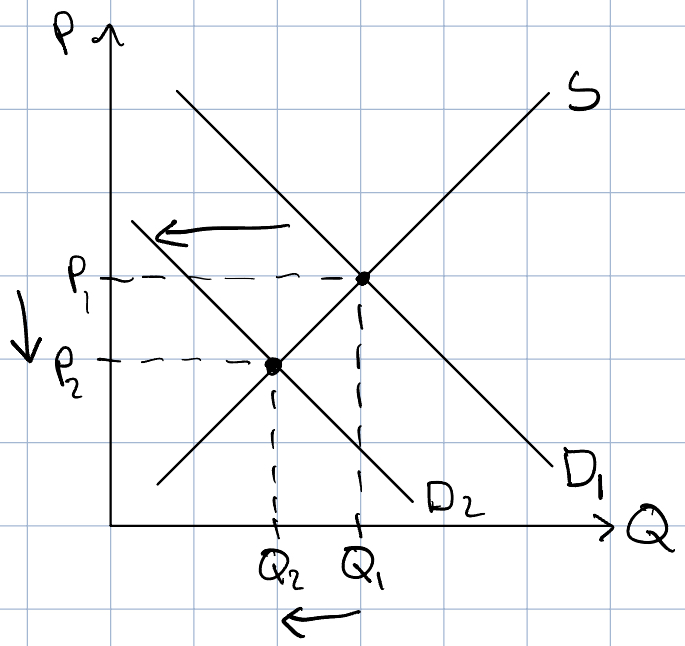 P
S
P₁
P₂
D₁
D₂
Q
Q₂
Q₁